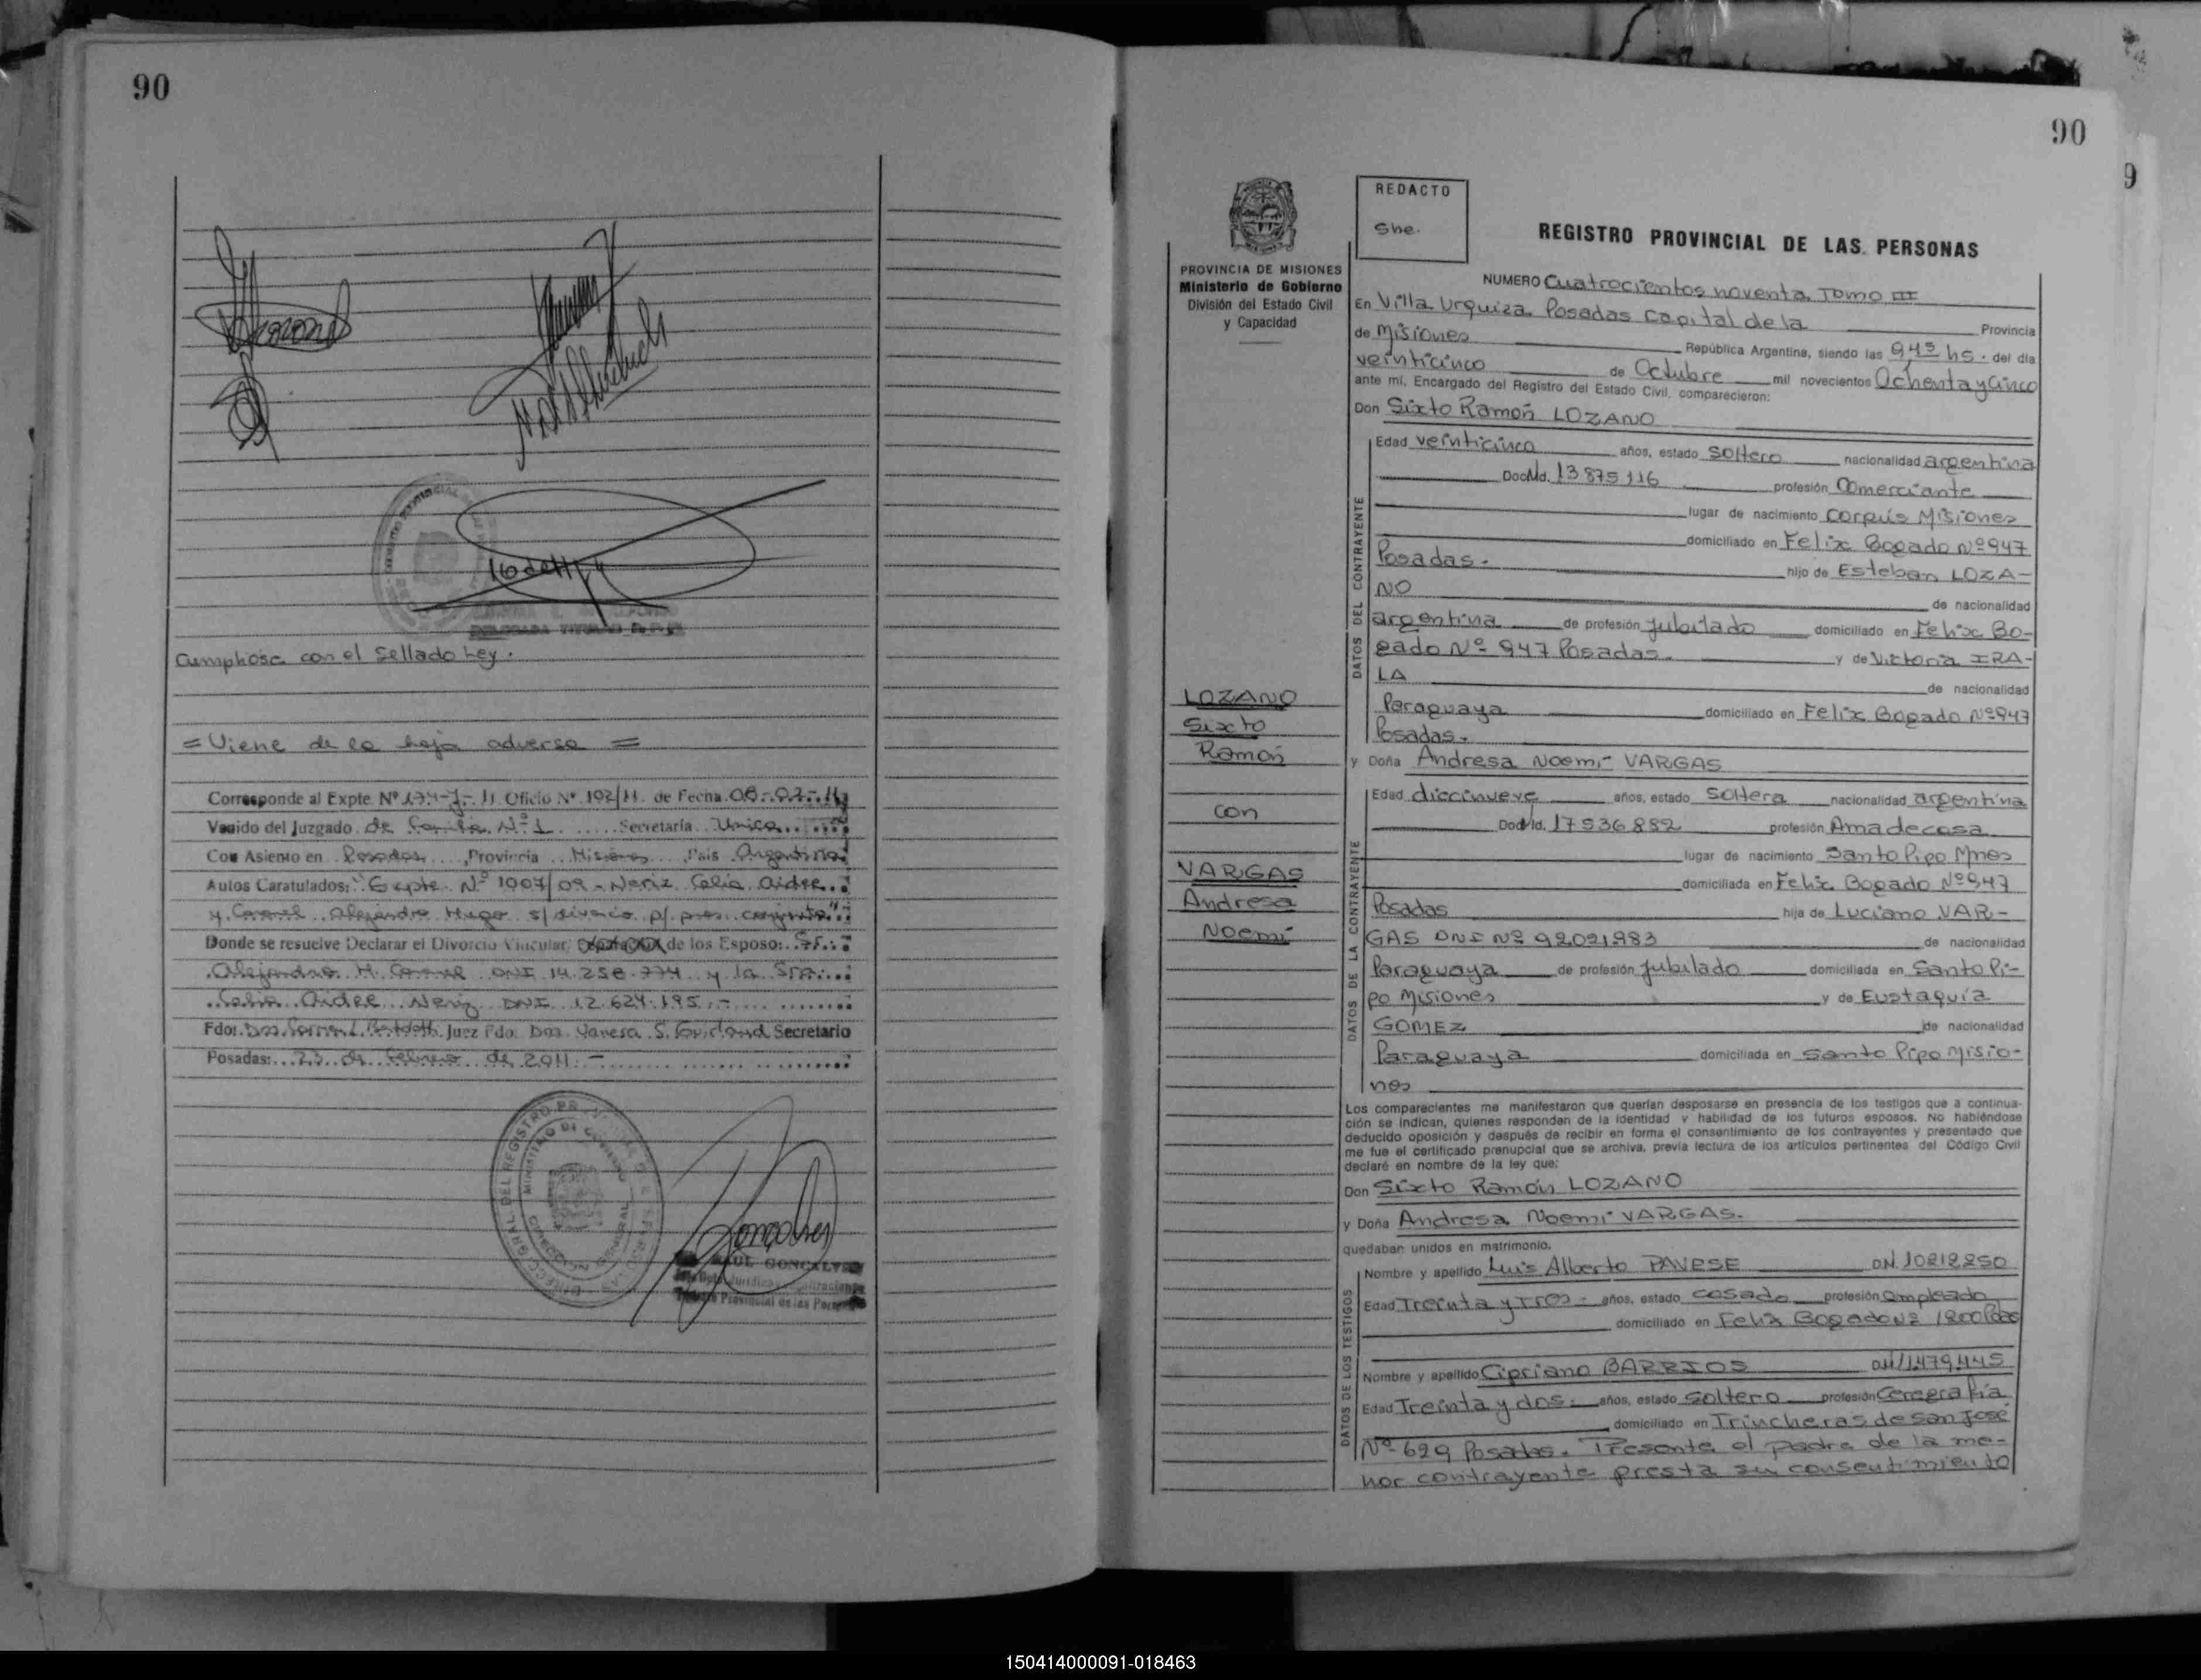 90
Cumpliose con el Sellado Ley.
= Viene de la hoja adversa =
Corresponde al Expte. Nº 174-J-11 Oficio Nº 102/11. de Fecha 08-02-11
Venido del Juzgado de Familia Nº 1 Secretaría Unica
Con Asiento en Posadas, Provincia Misiones País Argentina
Autos Caratulados: "Expte. Nº 1007/09 - Neriz Celia Aidee
y Coronel Alejandro Hugo s/ divorcio p/ pres. conjunta"
Donde se resuelve Declarar el Divorcio Vincular de los Esposo: Sr.
Alejandro H. Coronel DNI 14.258.774 y la Sra.
Celia Aidee Neriz DNI 12.624.195.-
Fdo: Dra. Juez Fdo. Dra. Vanesa S. Secretario
Posadas: 23 de febrero de 2011.-
RAUL GONCALVES
Registro Provincial de las Personas
90
9
REDACTO
She.
REGISTRO PROVINCIAL DE LAS PERSONAS
PROVINCIA DE MISIONES
Ministerio de Gobierno
División del Estado Civil
y Capacidad
NUMERO Cuatrocientos noventa Tomo III
En Villa Urquiza Posadas capital de la Provincia
de Misiones República Argentina, siendo las 9,45 hs. del día
veinticinco de Octubre mil novecientos Ochenta y Cinco
ante mí, Encargado del Registro del Estado Civil, comparecieron:
Don Sixto Ramón LOZANO
DATOS DEL CONTRAYENTE
Edad veinticinco años, estado soltero nacionalidad argentina
Doc.Id. 13.875.116 profesión Comerciante
lugar de nacimiento Corpus Misiones
domiciliado en Felix Bogado Nº 947
Posadas. hijo de Esteban LOZA-
NO de nacionalidad
argentina de profesión jubilado domiciliado en Felix Bo-
gado Nº 947 Posadas. y de Victoria IRA-
LA de nacionalidad
Paraguaya domiciliado en Felix Bogado Nº 947
Posadas.
LOZANO
Sixto
Ramón
con
VARGAS
Andresa
Noemí
y Doña Andresa Noemí VARGAS
DATOS DE LA CONTRAYENTE
Edad diecinueve años, estado soltera nacionalidad argentina
Doc.Id. 17536882 profesión Ama de casa
lugar de nacimiento Santo Pipo Mnes
domiciliada en Felix Bogado Nº 947
Posadas hija de Luciano VAR-
GAS DNI Nº 92021983 de nacionalidad
Paraguaya de profesión jubilado domiciliada en Santo Pi-
po Misiones y de Eustaquia
GOMEZ de nacionalidad
Paraguaya domiciliada en Santo Pipo Misio-
nes
Los comparecientes me manifestaron que querían desposarse en presencia de los testigos que a continua-
ción se indican, quienes responden de la identidad y habilidad de los futuros esposos. No habiéndose
deducido oposición y después de recibir en forma el consentimiento de los contrayentes y presentado que
me fue el certificado prenupcial que se archiva, previa lectura de los artículos pertinentes del Código Civil
declaré en nombre de la ley que:
Don Sixto Ramón LOZANO
y Doña Andresa Noemí VARGAS.
quedaban unidos en matrimonio.
DATOS DE LOS TESTIGOS
Nombre y apellido Luis Alberto PAVESE DNI. 10212250
Edad Treinta y Tres - años, estado casado profesión empleado
domiciliado en Felix Bogado Nº 1800 Pdas
Nombre y apellido Cipriano BARRIOS DNI 11479445
Edad Treinta y dos. años, estado soltero profesión Ceregrafia
domiciliado en Trincheras de San José
Nº 629 Posadas. Presente el padre de la me-
nor contrayente presta su consentimiento
150414000091-018463